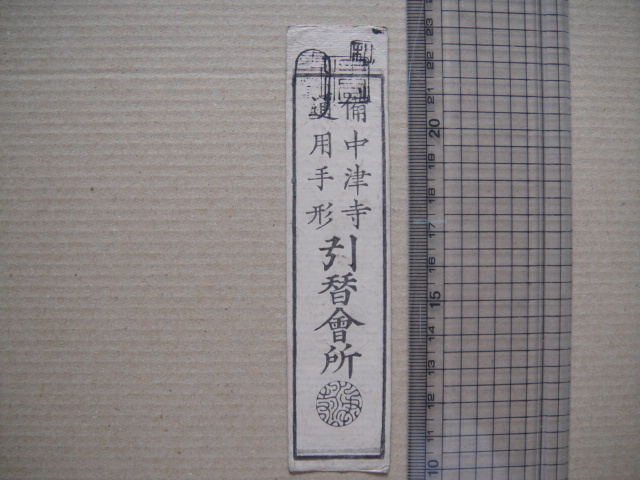 備中津寺
通用手形
引替會所
23
22
21
20
19
18
17
16
15
14
13
12
11
10